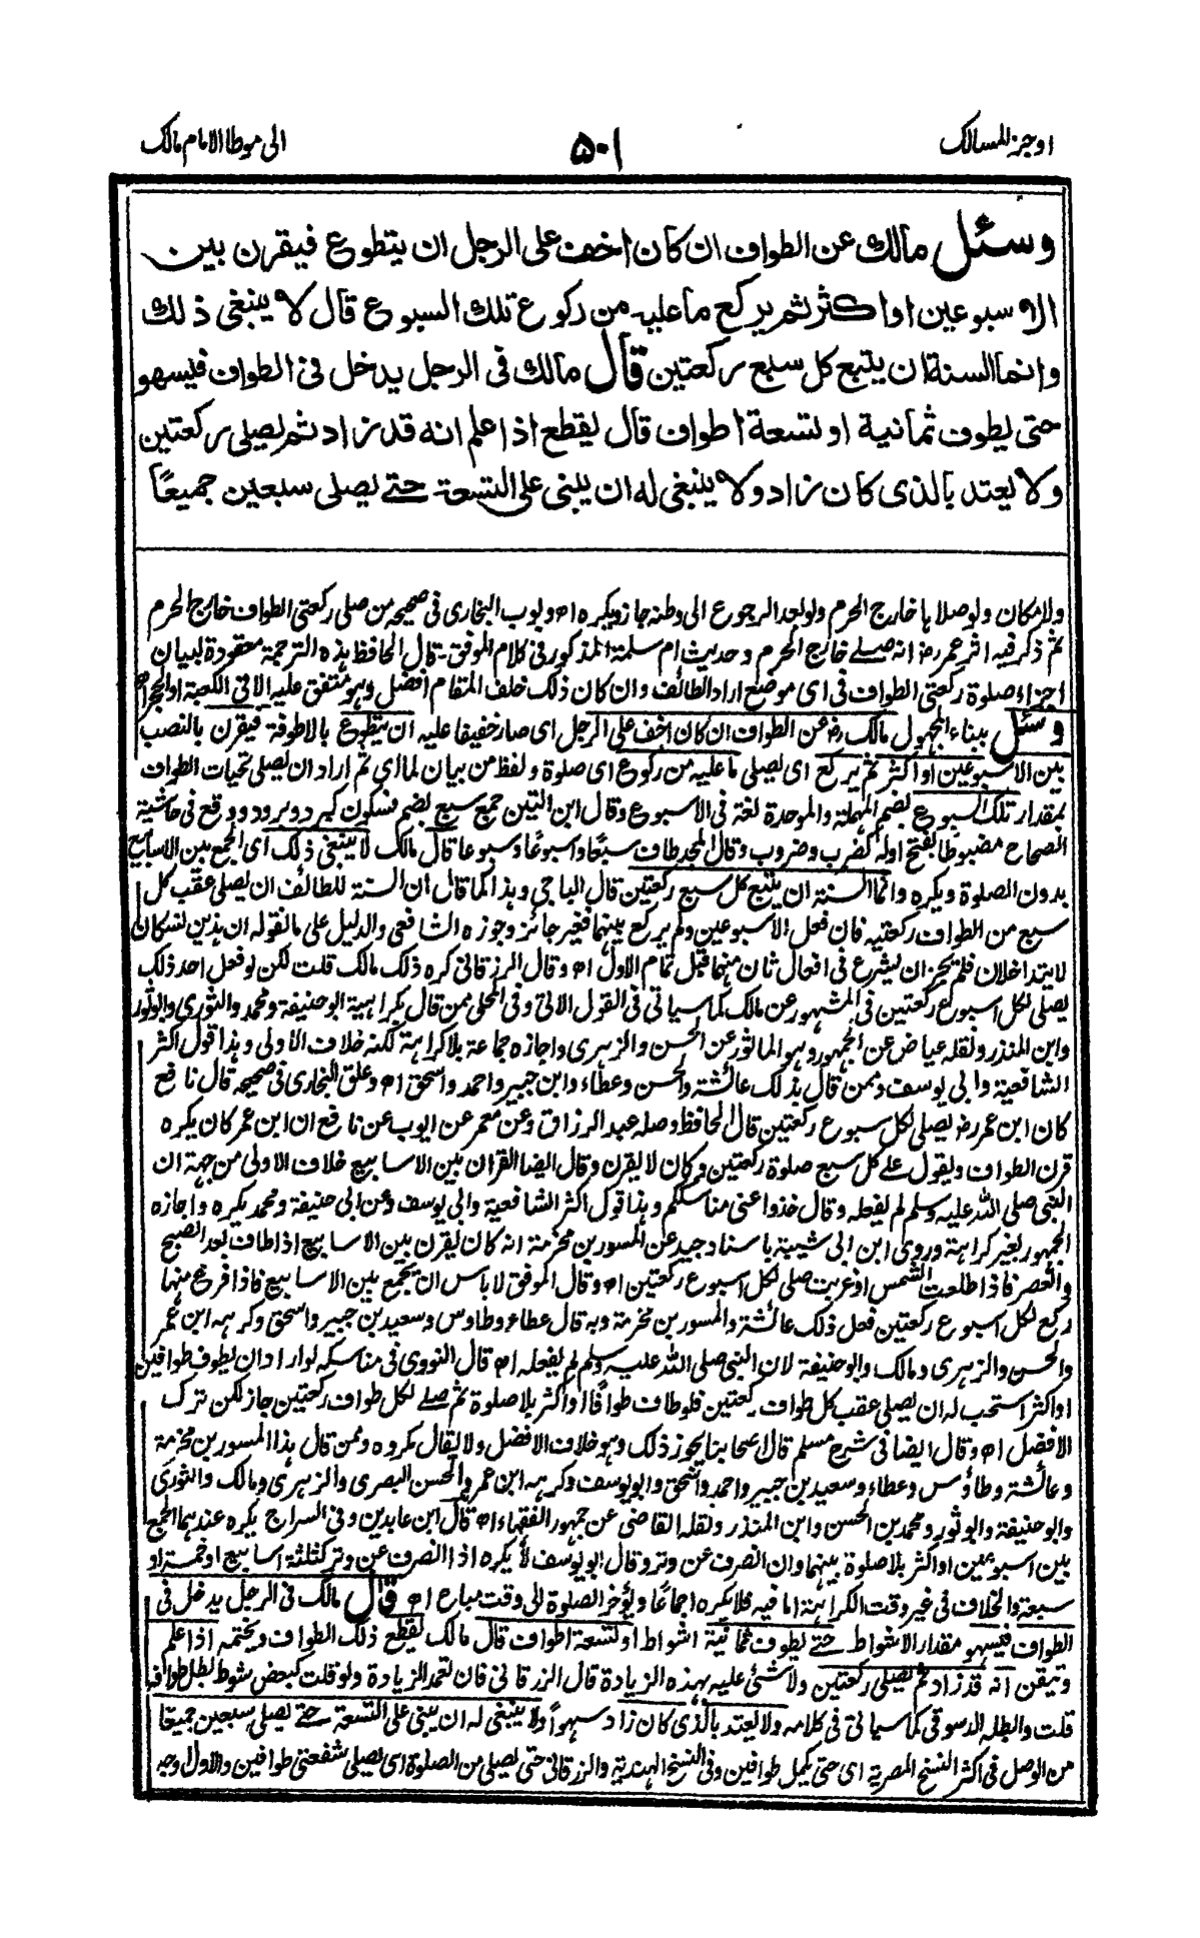 اوجز المسالک
۵۰۱
الی موطا الامام مالک
وسئل مالك عن الطواف ان كان اخف على الرجل ان يتطوع فيقرن بين
الاسبوعين او اكثر ثم يركع ما عليه من ركوع تلك السبوع قال لا ينبغي ذلك
وانما السنة ان يتبع كل سبع ركعتين قال مالك في الرجل يدخل في الطواف فيسهو
حتى يطوف ثمانية او تسعة اطواف قال يقطع اذا علم انه قد زاد ثم يصلي ركعتين
ولا يعتد بالذي كان زاد ولا ينبغي له ان يبني على التسعة حتے يصلي سبعين جميعًا
والامكان ولو صلاها خارج الحرم ولو بعد الرجوع الى وطنه جاز ويكره اه وبوب البخاري في صحيحه من صلى ركعتي الطواف خارج الحرم
ثم ذكر فيه اثر عمر رض انه صلے خارج الحرم وحديث ام سلمة المذكور في كلام الموفق۔ قال الحافظ هذه الترجمة معقودة لبيان
اجزاء صلوة ركعتي الطواف في اي موضع اراد الطائف وان كان ذلك خلف المقام افضل وهو متفق عليه الا في الكعبة او الحجر اه
وسئل ببناء المجهول مالك رض عن الطواف ان كان اخف على الرجل اي صار خفيفا عليه ان يتطوع بالاطوفة فيقرن بالنصب
بين الاسبوعين او اكثر ثم يركع اي يصلي ما عليه من ركوع اي صلوة ولفظ من بيان لما اي ثم اراد ان يصلي تحيات الطواف
بمقدار تلك السبوع بضم المهملة والموحدة لغة في الاسبوع وقال ابن التين جمع سبع بضم فسكون كبرد وبرود ووقع في حاشية
الصحاح مضبوطا بفتح اوله كضرب وضروب وقال المجد طاف سبعًا واسبوعًا وسبوعا قال مالك لا ينبغي ذلك اي الجمع بين الاسابيع
بدون الصلوة ويكره وانما السنة ان يتبع كل سبع ركعتين قال الباجي وهذا كما قال ان السنة للطائف ان يصلي عقب كل
سبع من الطواف ركعتيه فان فعل الاسبوعين ولم يركع بينهما فغير جائز وجوزه الشافعي والدليل على ما نقوله ان هذين نسكان
لا يتداخلان فلم يجز ان يشرع في افعال ثان منهما قبل تمام الاول اه وقال الزرقاني كره ذلك مالك قلت لكن لو فعل احد ذلك
يصلي لكل اسبوع ركعتين في المشهور عن مالك كما سياتي في القول الاتي وفي المحلى ممن قال بكراهية ابو حنيفة ومحمد والثوري وابو ثور
وابن المنذر ونقله عياض عن الجمهور وهو الماثور عن الحسن والزهري واجازه جماعة بلا كراهة لكنه خلاف الاولى وهذا قول اكثر
الشافعية وابي يوسف وممن قال بذلك عائشة والحسن وعطاء وابن جبير واحمد واسحق اه وعلق البخاري في صحيحه قال نافع
كان ابن عمر رض يصلي لكل سبوع ركعتين قال الحافظ وصله عبد الرزاق وعن معمر عن ايوب عن نافع ان ابن عمر كان يكره
قرن الطواف ويقول علے كل سبع صلوة ركعتين وكان لا يقرن وقال ايضا القران بين الاسابيع خلاف الاولى من جهة ان
النبي صلى الله عليه وسلم لم يفعله وقال خذوا عني مناسككم وهذا قول اكثر الشافعية وابي يوسف وعن ابي حنيفة ومحمد يكره واجازه
الجمهور بغير كراهة وروى ابن ابي شيبة باسناد جيد عن المسور بن مخرمة انه كان يقرن بين الاسابيع اذا طاف بعد الصبح
والعصر فاذا طلعت الشمس او غربت صلى لكل اسبوع ركعتين اه وقال الموفق لا باس ان يجمع بين الاسابيع فاذا فرغ منها
ركع لكل اسبوع ركعتين فعل ذلك عائشة والمسور بن مخرمة وبه قال عطاء وطاوس وسعيد بن جبير واسحق وكرهه ابن عمر
والحسن والزهري ومالك وابو حنيفة لان النبي صلى الله عليه وسلم لم يفعله اه قال النووي في مناسكه لو اراد ان يطوف طوافين
او اكثر استحب له ان يصلي عقب كل طواف ركعتين فلو طاف طوافًا او اكثر بلا صلوة ثم صلے لكل طواف ركعتين جاز لكن ترك
الافضل اه وقال ايضا في شرح مسلم قال اصحابنا يجوز ذلك وهو خلاف الافضل ولا يقال مكروه وممن قال بهذا المسور بن مخرمة
وعائشة وطاؤس وعطاء وسعيد بن جبير واحمد واسحق وابو يوسف وكرهه ابن عمر والحسن البصري والزهري ومالك والثوري
وابو حنيفة وابو ثور ومحمد بن الحسن وابن المنذر ونقله القاضي عن جمهور الفقهاء اه قال ابن عابدين وفي السراج يكره عندهما الجمع
بين اسبوعين او اكثر بلا صلوة بينهما وان انصرف عن وتر وقال ابو يوسف لا يكره اذا انصرف عن وتر كثلثة اسابيع او خمسة او
سبعة والخلاف في غير وقت الكراهة اما فيه فلا يكره اجماعًا ويؤخر الصلوة الى وقت مباح اه قال مالك في الرجل يدخل في
الطواف فيسهو مقدار الاشواط حتے يطوف ثمانية اشواط او تسعة اطواف قال مالك يقطع ذلك الطواف ويختمه اذا علم
وتيقن انه قد زاد ثم يصلي ركعتين ولا شئ عليه بهذه الزيادة قال الزرقاني فان تعمد الزيادة ولو قلت كبعض شوط بطل طوافه
قلت وابطله الدسوقي كما سياتي في كلامه ولا يعتد بالذي كان زاد سهوا ولا ينبغي له ان يبني على التسعة حتے يصلي سبعين جميعًا
من الوصل في اكثر النسخ المصرية اي حتى يكمل طوافين وفي النسخ الهندية والزرقاني حتى يصلي من الصلوة اي يصلي شفعتي طوافين والاول وجه